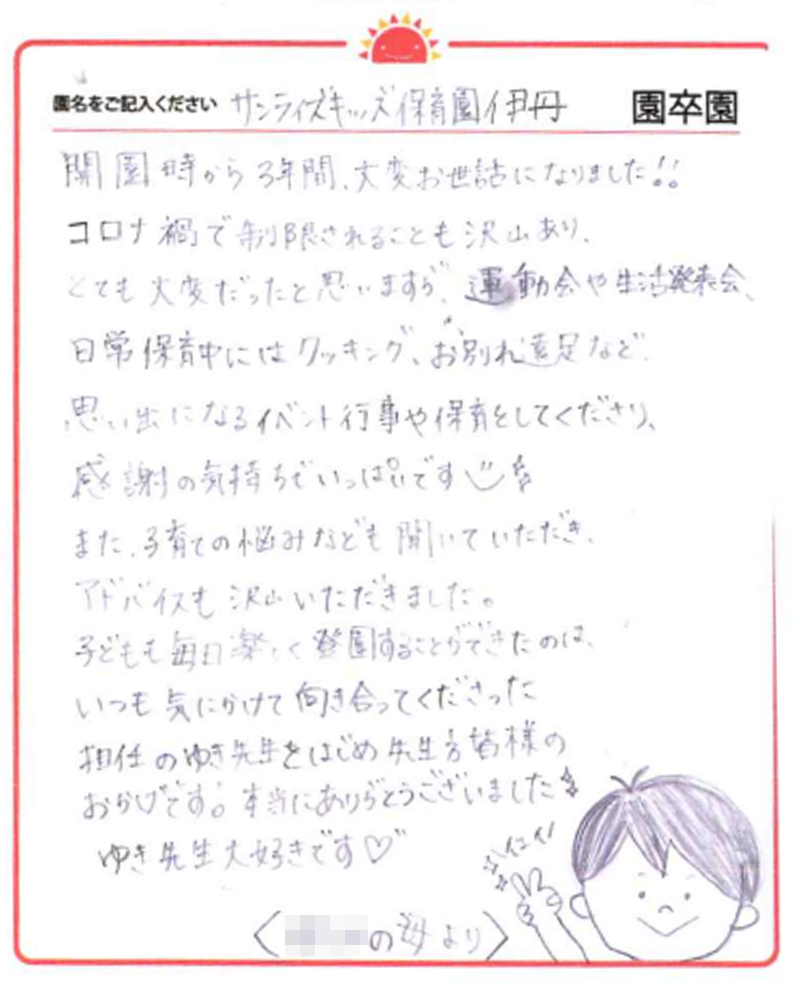 園名をご記入ください サンライズキッズ保育園伊丹 園卒園
開園時から3年間、大変お世話になりました!!
コロナ禍で制限されることも沢山あり、
とても大変だったと思いますが、運動会や生活発表会、
日常保育中にはクッキング、お別れ遠足など
思い出になるイベント行事や保育をしてくださり、
感謝の気持ちでいっぱいです
また、子育ての悩みなども聞いていただき、
アドバイスも沢山いただきました。
子どもも毎日楽しく登園することができたのは、
いつも気にかけて向き合ってくださった
担任のゆき先生をはじめ先生方皆様の
おかげです。本当にありがとうございました
ゆき先生大好きです♡
イェイ!
〈 の母より〉